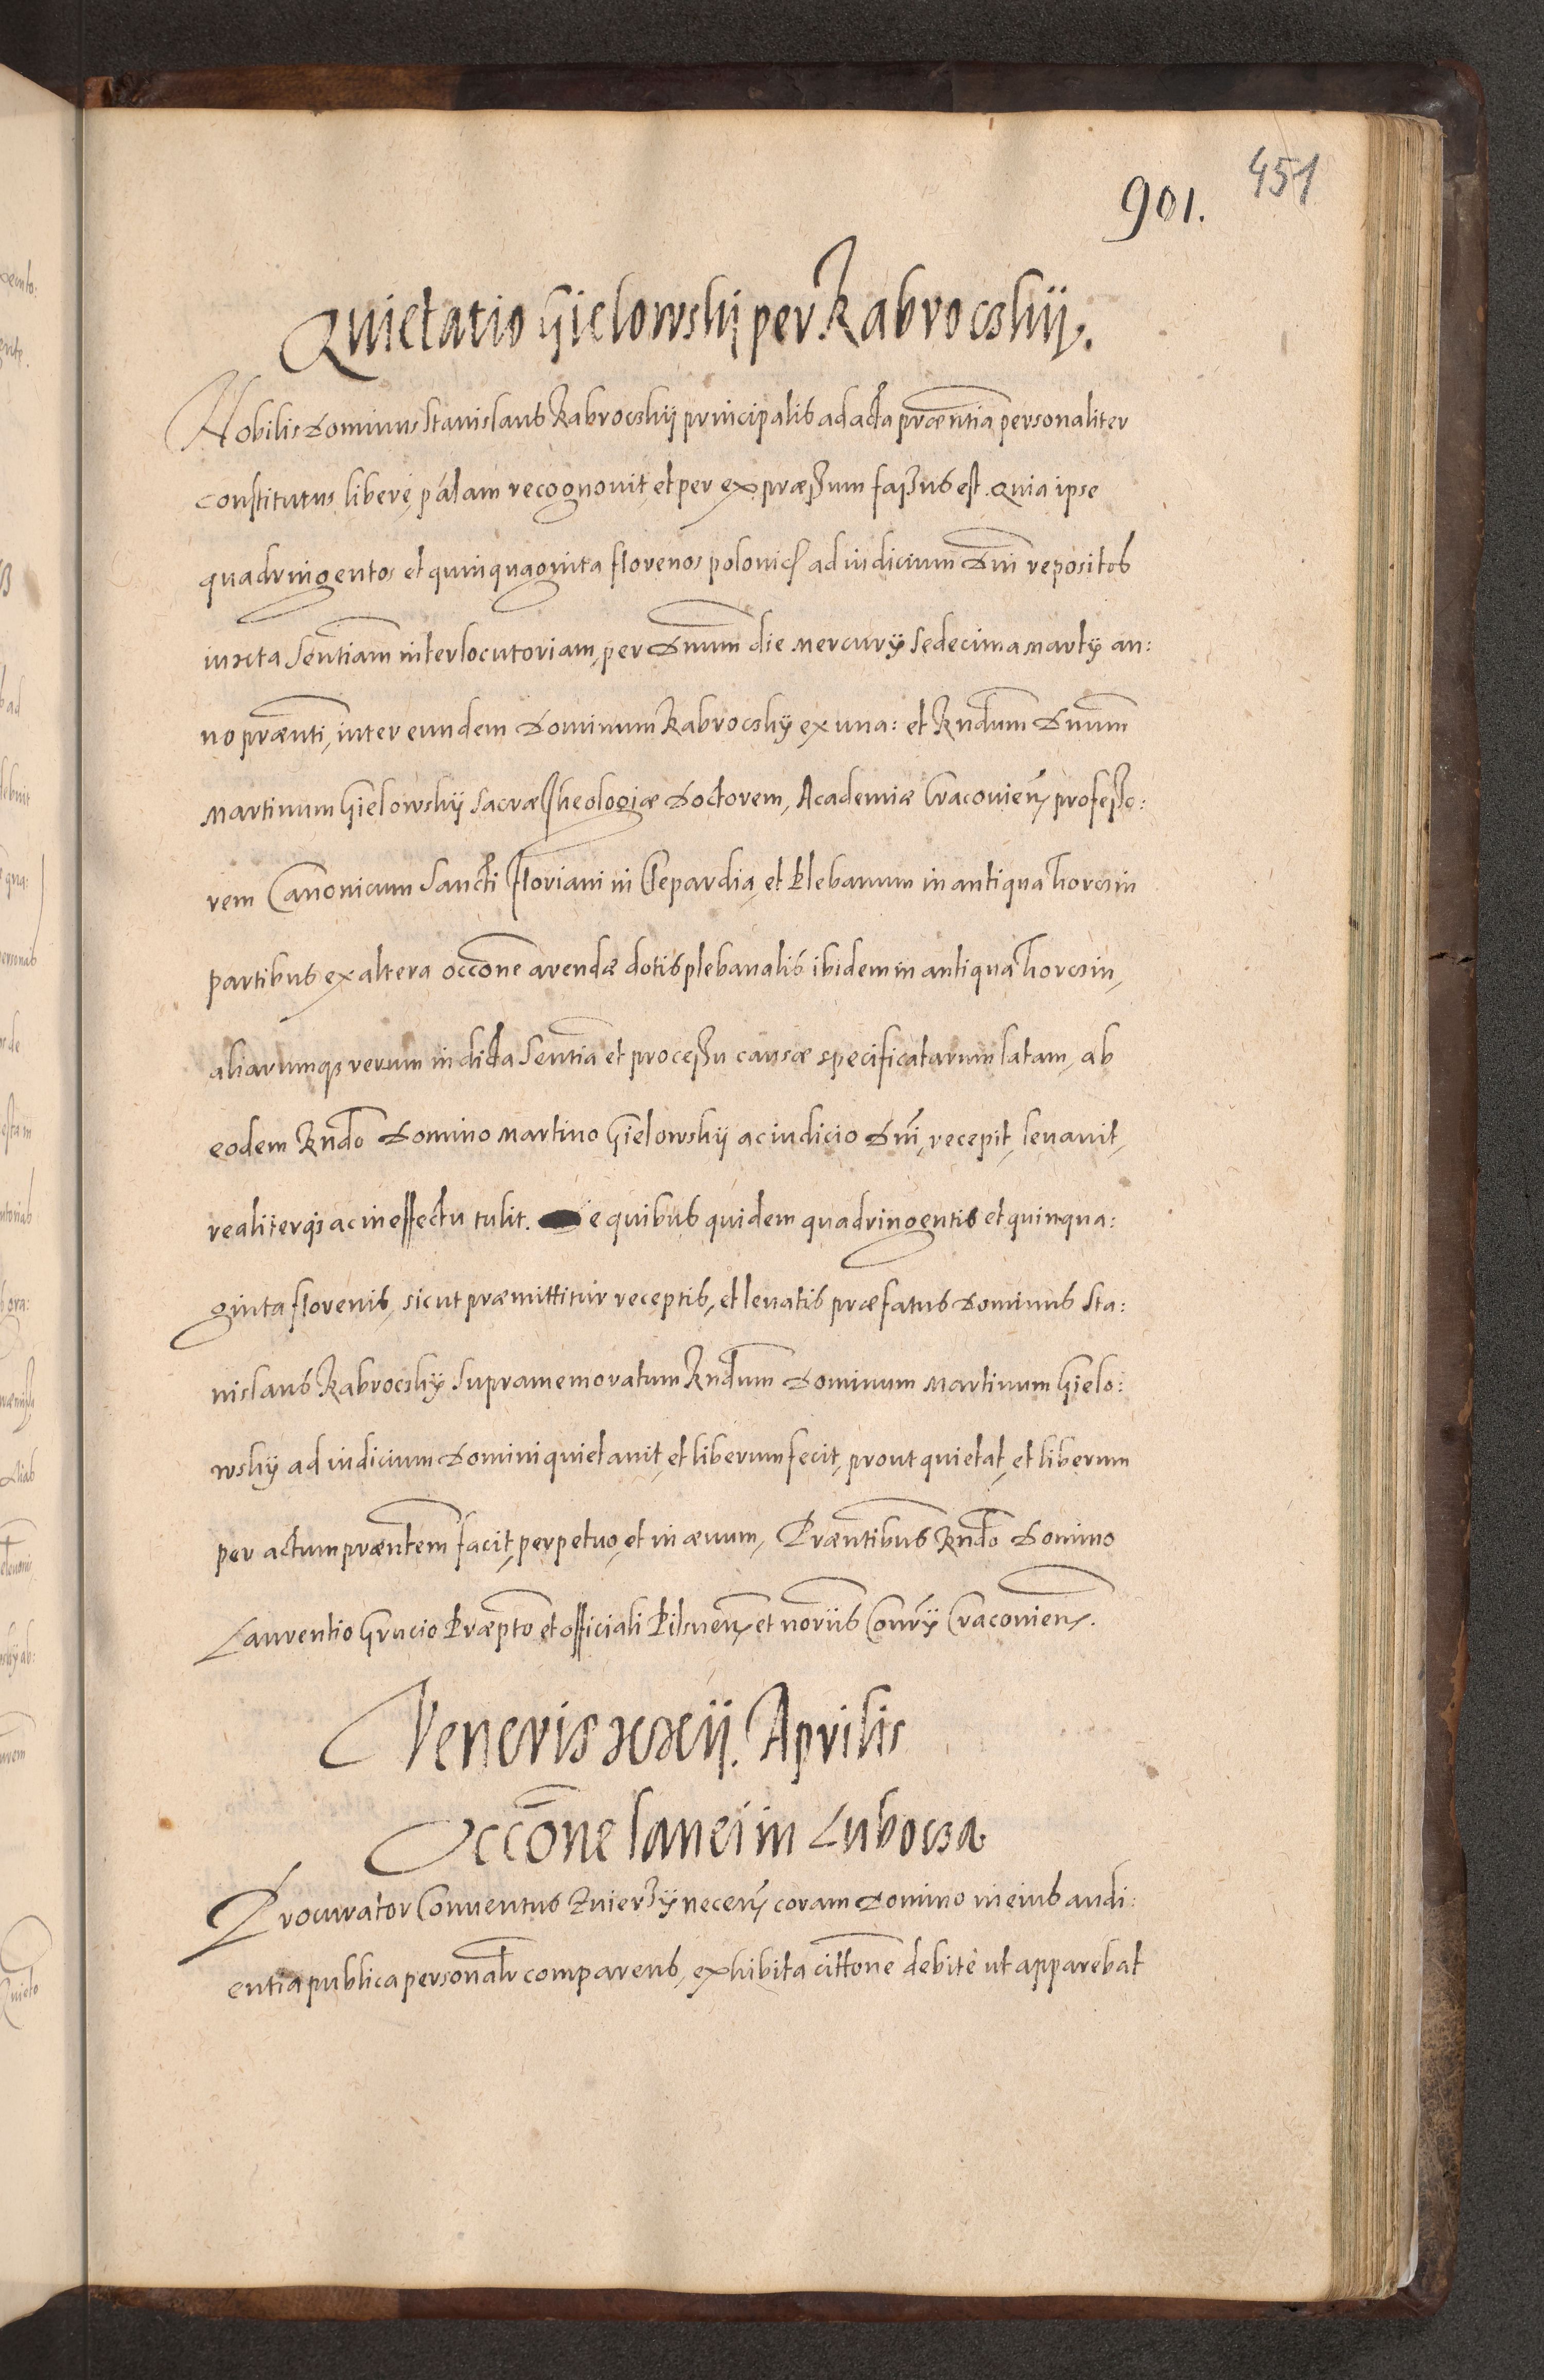 451
901.
Quietatio Gielowskij per Kabroczkij.
Nobilis Dominus Stanislaus Kabroczkij principalis ad acta præntia personaliter
constitutus liberè, pálam recognovit, et per expræßum faßus est. Quia ipse
quadringentos et quinquaginta florenos ad iudicium Dni repositos
iuxta Sententiam interlocutoriam, per Dnum die Mercurij Sedecima Martij an:
no prænti, inter eundem Dominum Kabroczkij ex una: et Rndum Dnum
Martinum Gielowskij Sacræ Theologiæ Doctorem, Academiæ Cracovien professo:
rem Canonicum Sancti Floriani in Clepardia, et Plebanum in antiqua
partibus ex altera occone arendæ dotis plebanalis ibidem in antiqua
aliarumque rerum in dicta Sententia et proceßu causæ specificatarum latam, ab
eodem Rndo Domino Martino Gielowskij ac iudicio Dni, recepit, levavit,
realiterque ac in effectu tulit. e quibus quidem quadringentis et quinqua:
ginta florenis, sicut præmittitur receptis, et levatis præfatus Dominus Sta:
nislaus Kabroczkij Supramemoratum Rndum Dominum Martinum Gielo:
wskij ad iudicium Domini quietavit, et liberum fecit, prout quietat, et liberum
per actum præntem facit, perpetuo, et in ævum, Præntibus Rndo Domino
Laurentio Grucio Præpto et officiali Pilsnen et noriis Conrij Cracovien.
Veneris xxij. Aprilis
Occone lanei in Lubocza
Procurator Conventus coram Domino in eius audi:
entia publica personalr comparens, exhibita cittone debitè ut apparebat